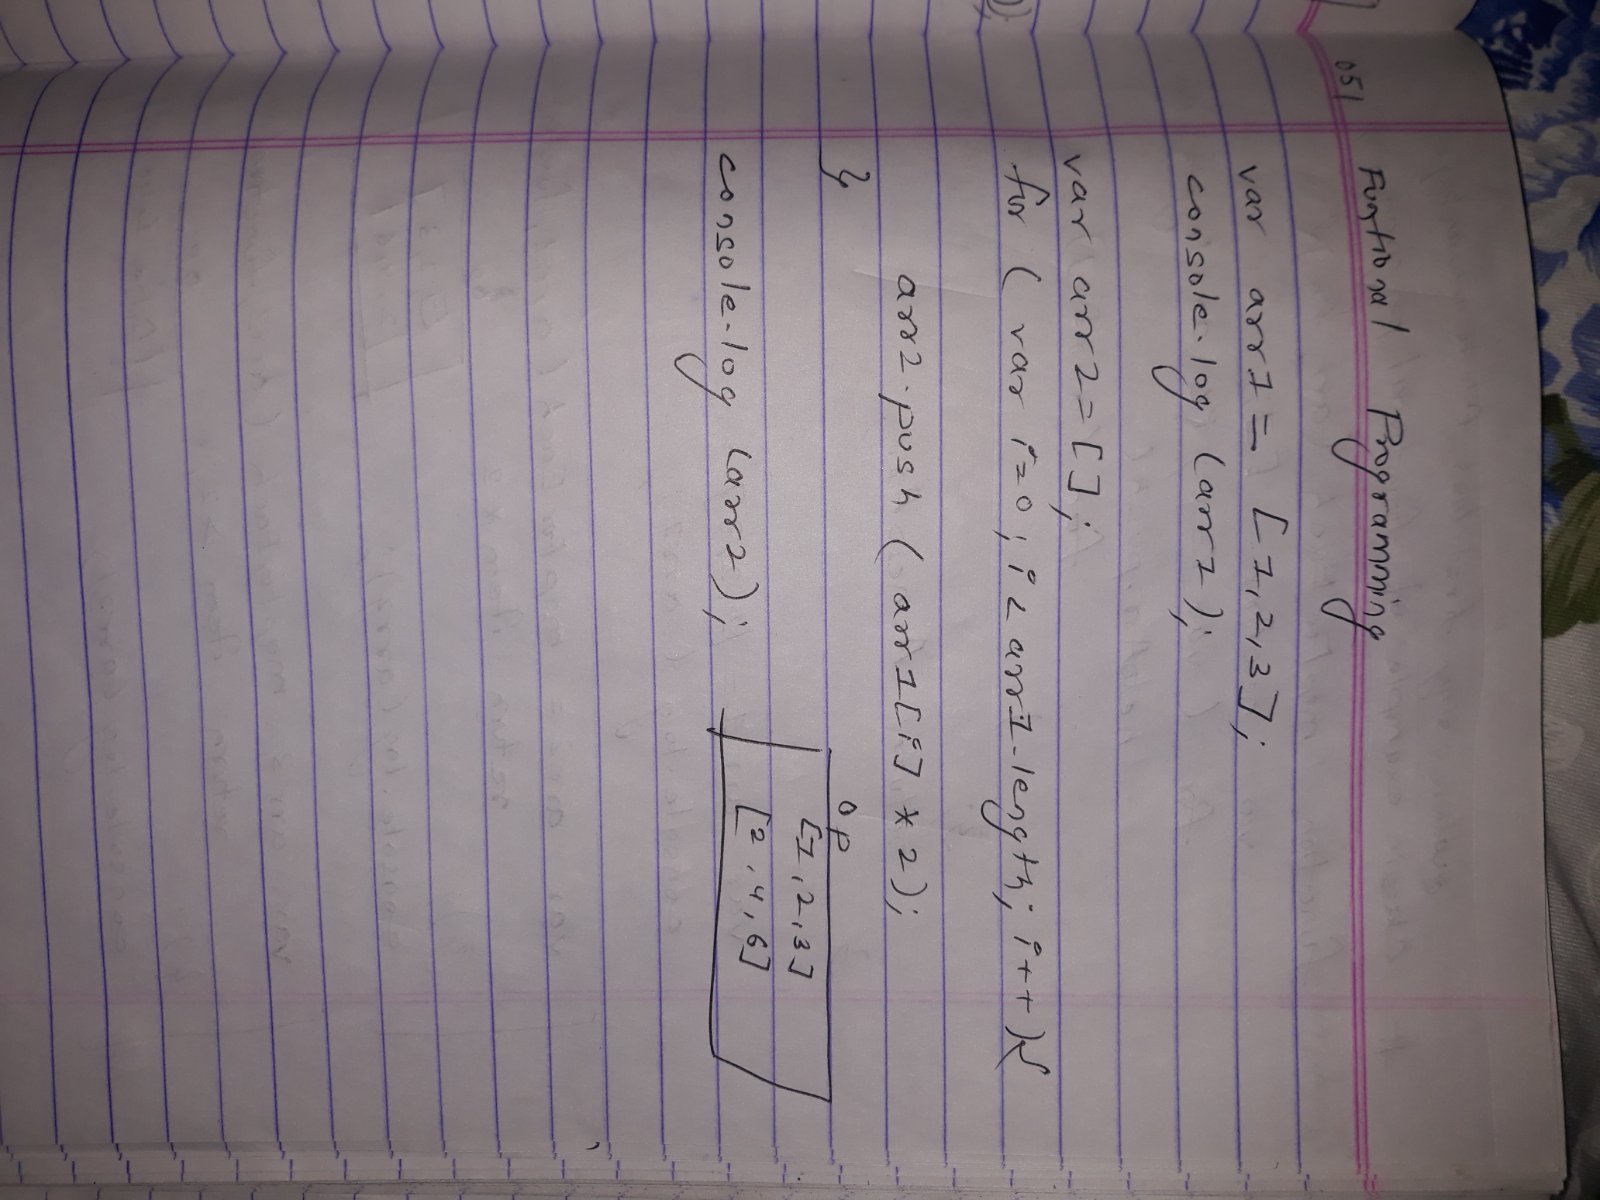 051 Funtional Programming
var arr1 = [1,2,3];
console.log (arr1);
var arr2=[];
for ( var i=0; i< arr1.length; i++){
arr2.push ( arr1[i] * 2);
}
op
[1,2,3]
[2,4,6]
console.log (arr2);